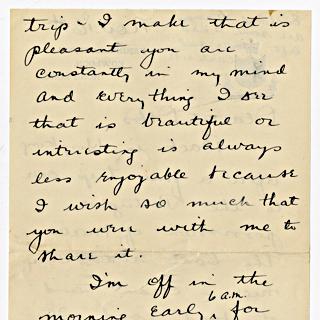 trip - I make that is
pleasant you are
constantly in my mind
and everything I see
that is beautiful or
interesting is always
less enjoyable because
I wish so much that
you were with me to
share it.
I'm off in the
6 a.m.
morning early, for